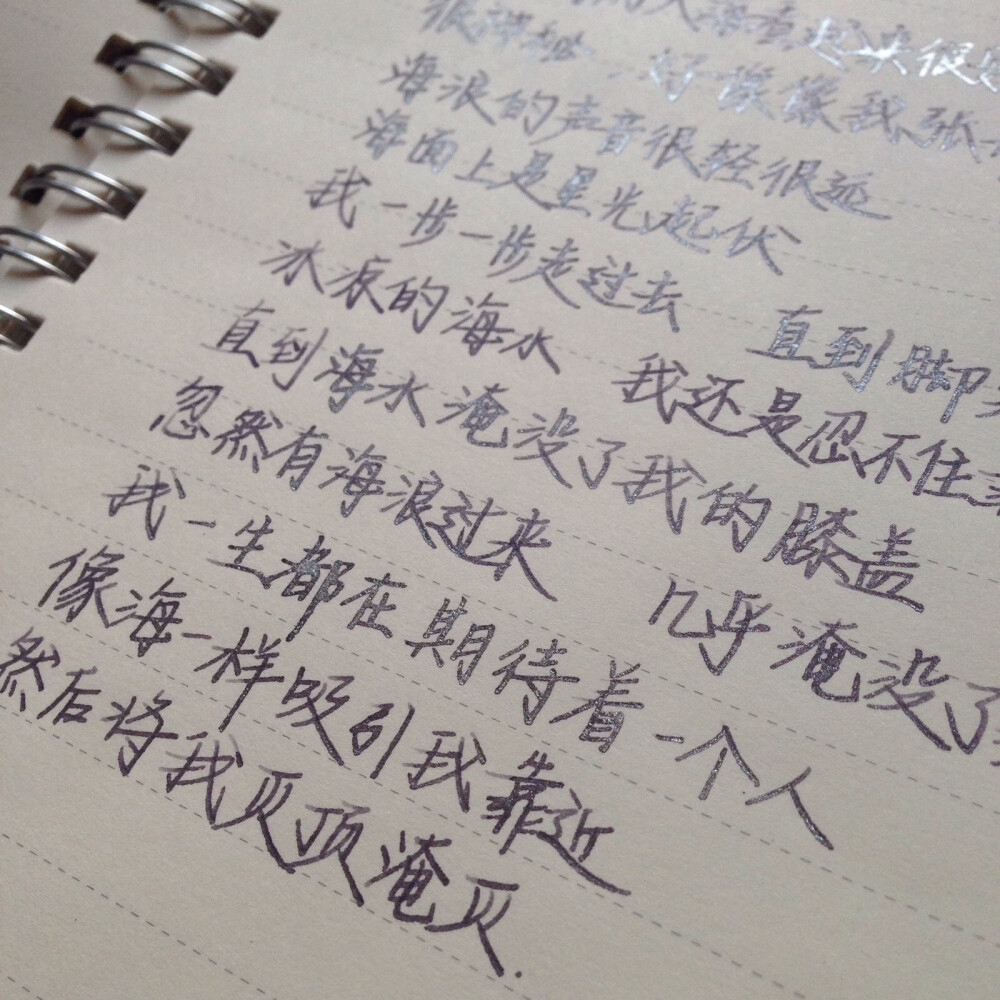 起来很
很神秘，好像像我张
海浪的声音很轻很延
海面上是星光起伏
我一步一步走过去 直到脚
冰凉的海水 我还是忍不住
直到海水淹没了我的膝盖
忽然有海浪过来 几乎淹没了
我一生都在期待着一个人
像海一样吸引我靠近
然后将我灭顶淹灭.